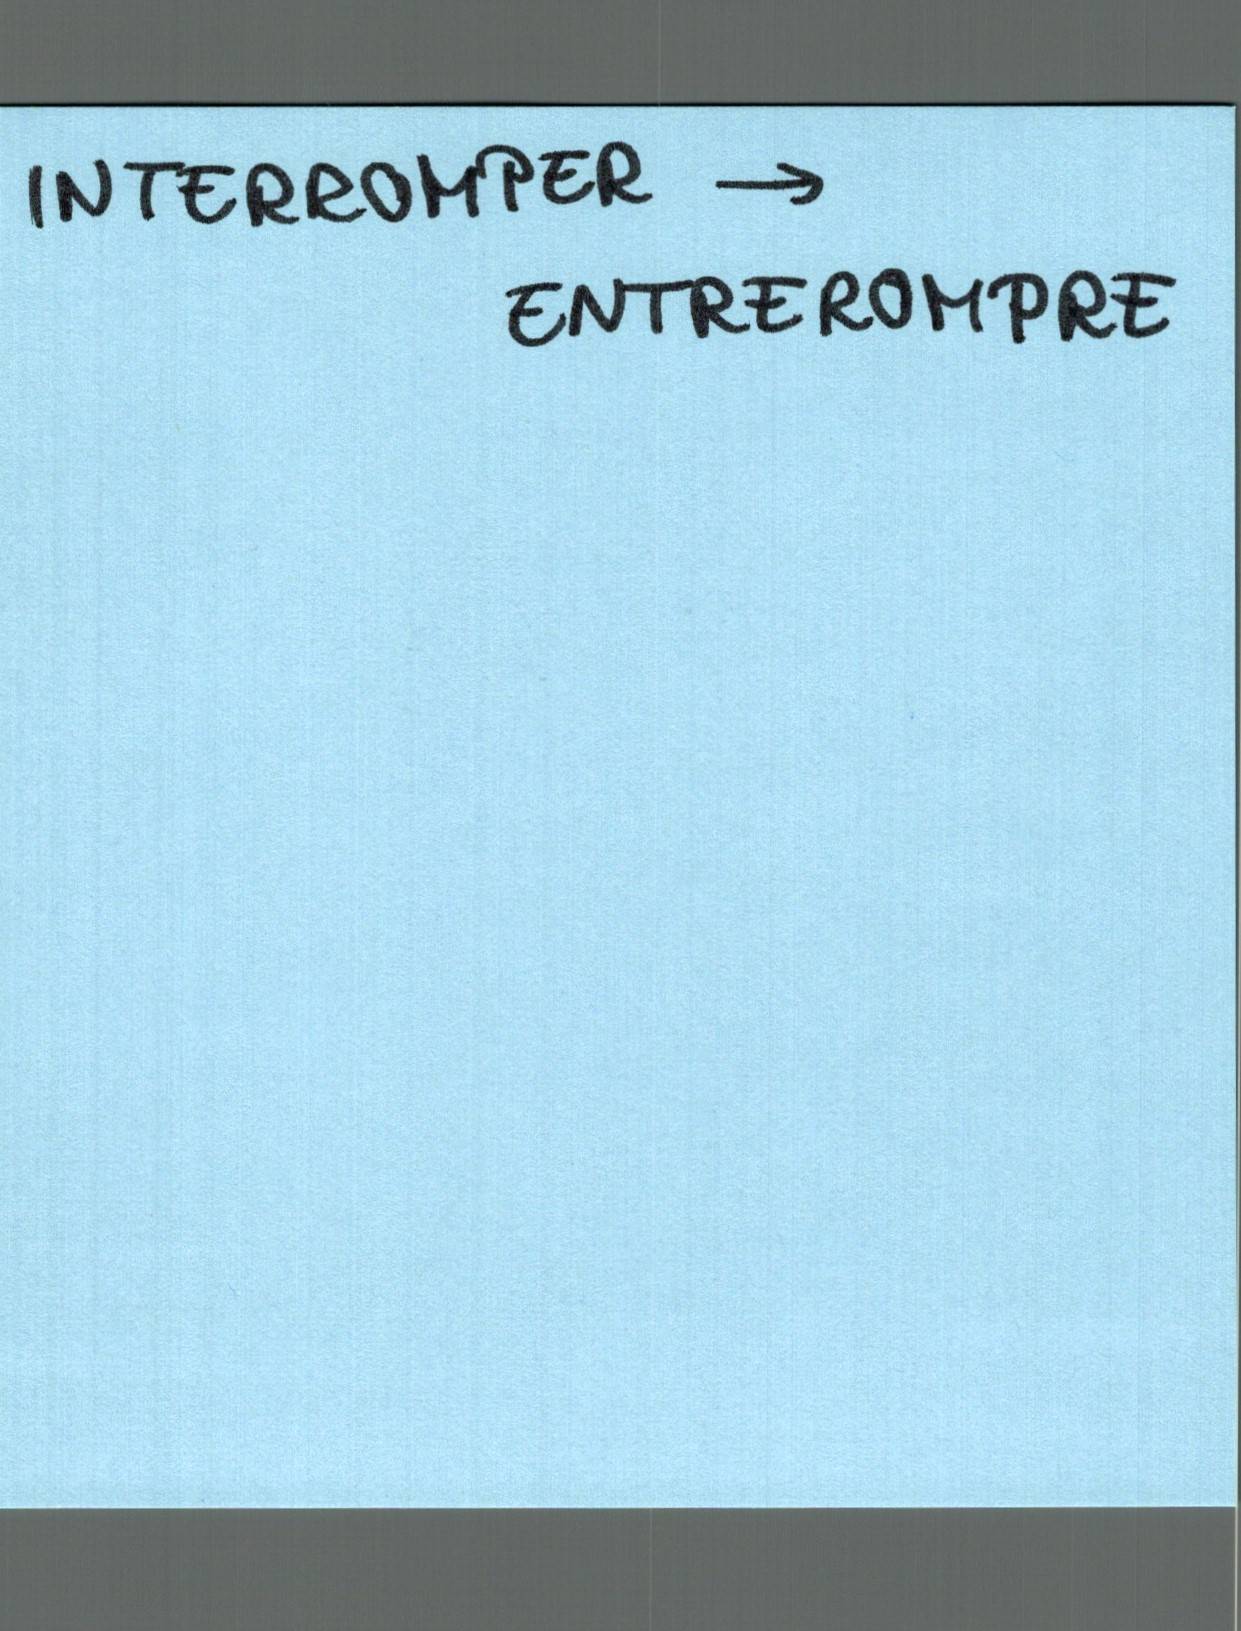 INTERROMPER →
ENTREROMPRE